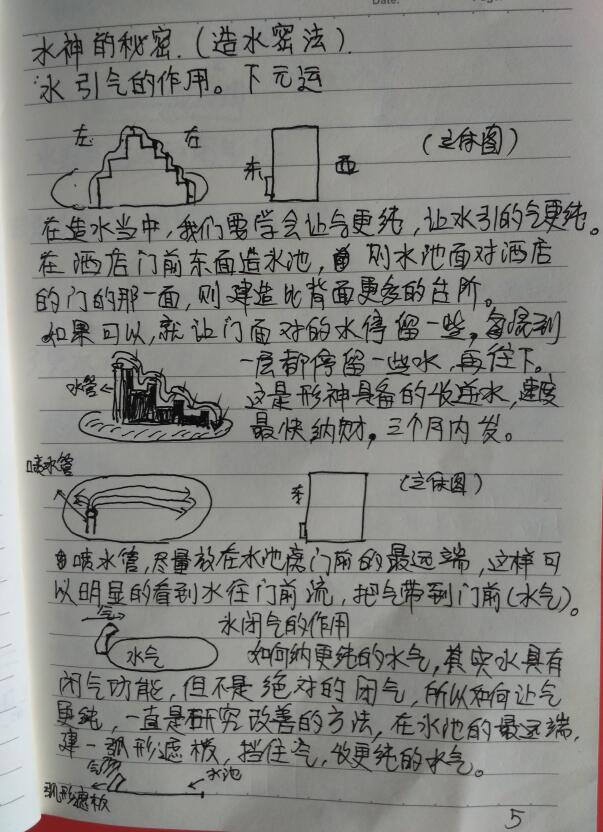 Date:
水神的秘密.(造水密法).
水引气的作用。下元运
左 右
东 西
(立体图)
在造水当中,我们要学会让气更纯,让水引的气更纯。
在酒店门前东面造水池,则水池面对酒店
的门的那一面,则建造比背面更多的台阶。
如果可以,就让门面对的水停留一些,每流到
一层都停留一些水,再往下。
水管
这是形神具备的收逆水,速度
最快纳财,三个月内发。
喷水管
东
(立体图)
喷水管,尽量放在水池离门前的最远端,这样可
以明显的看到水往门前流,把气带到门前(水气)。
气
水闭气的作用
水气
如何纳更纯的水气,其实水具有
闭气功能,但不是绝对的闭气,所以如何让气
更纯,一直是研究改善的方法,在水池的最远端,
建一弧形滤板,挡住气,收更纯的水气。
水池
弧形滤板
5